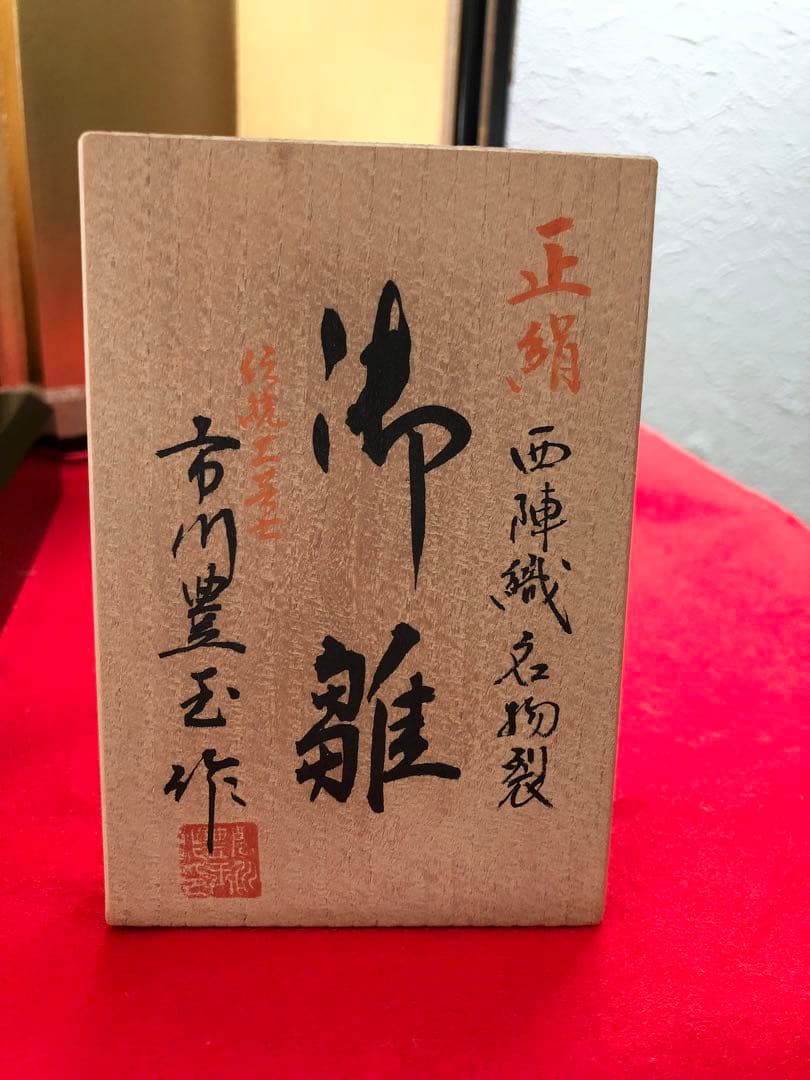 正絹
西陣織名物裂
御雛
伝統工芸士
市川豊玉作